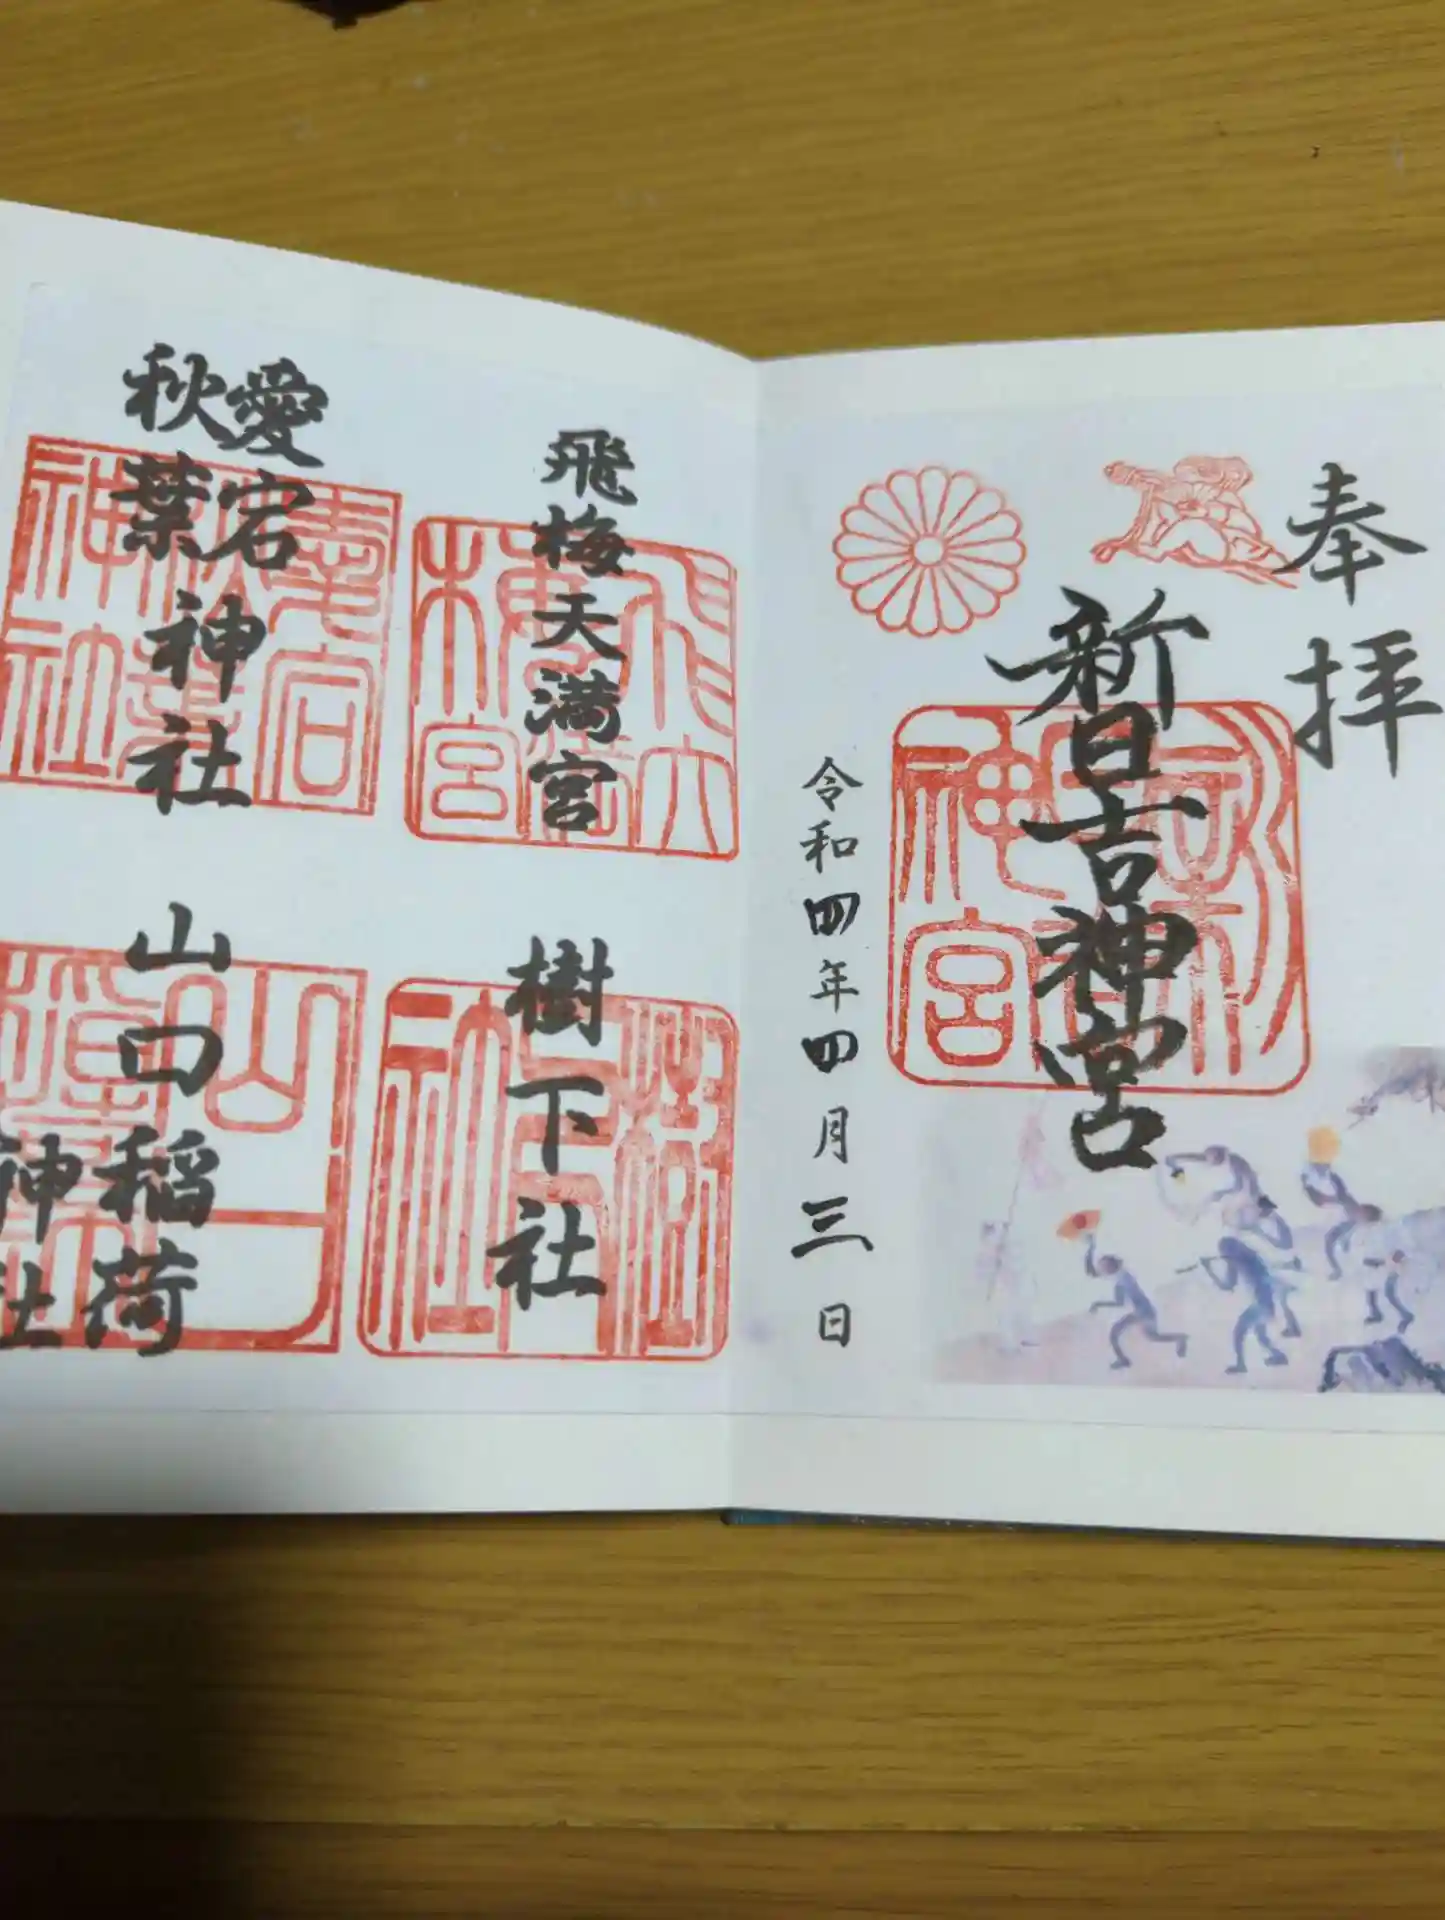 奉拝
新日吉神宮
令和四年四月三日
飛梅天満宮
愛宕
秋葉
神社
樹下社
山口稲荷
神社